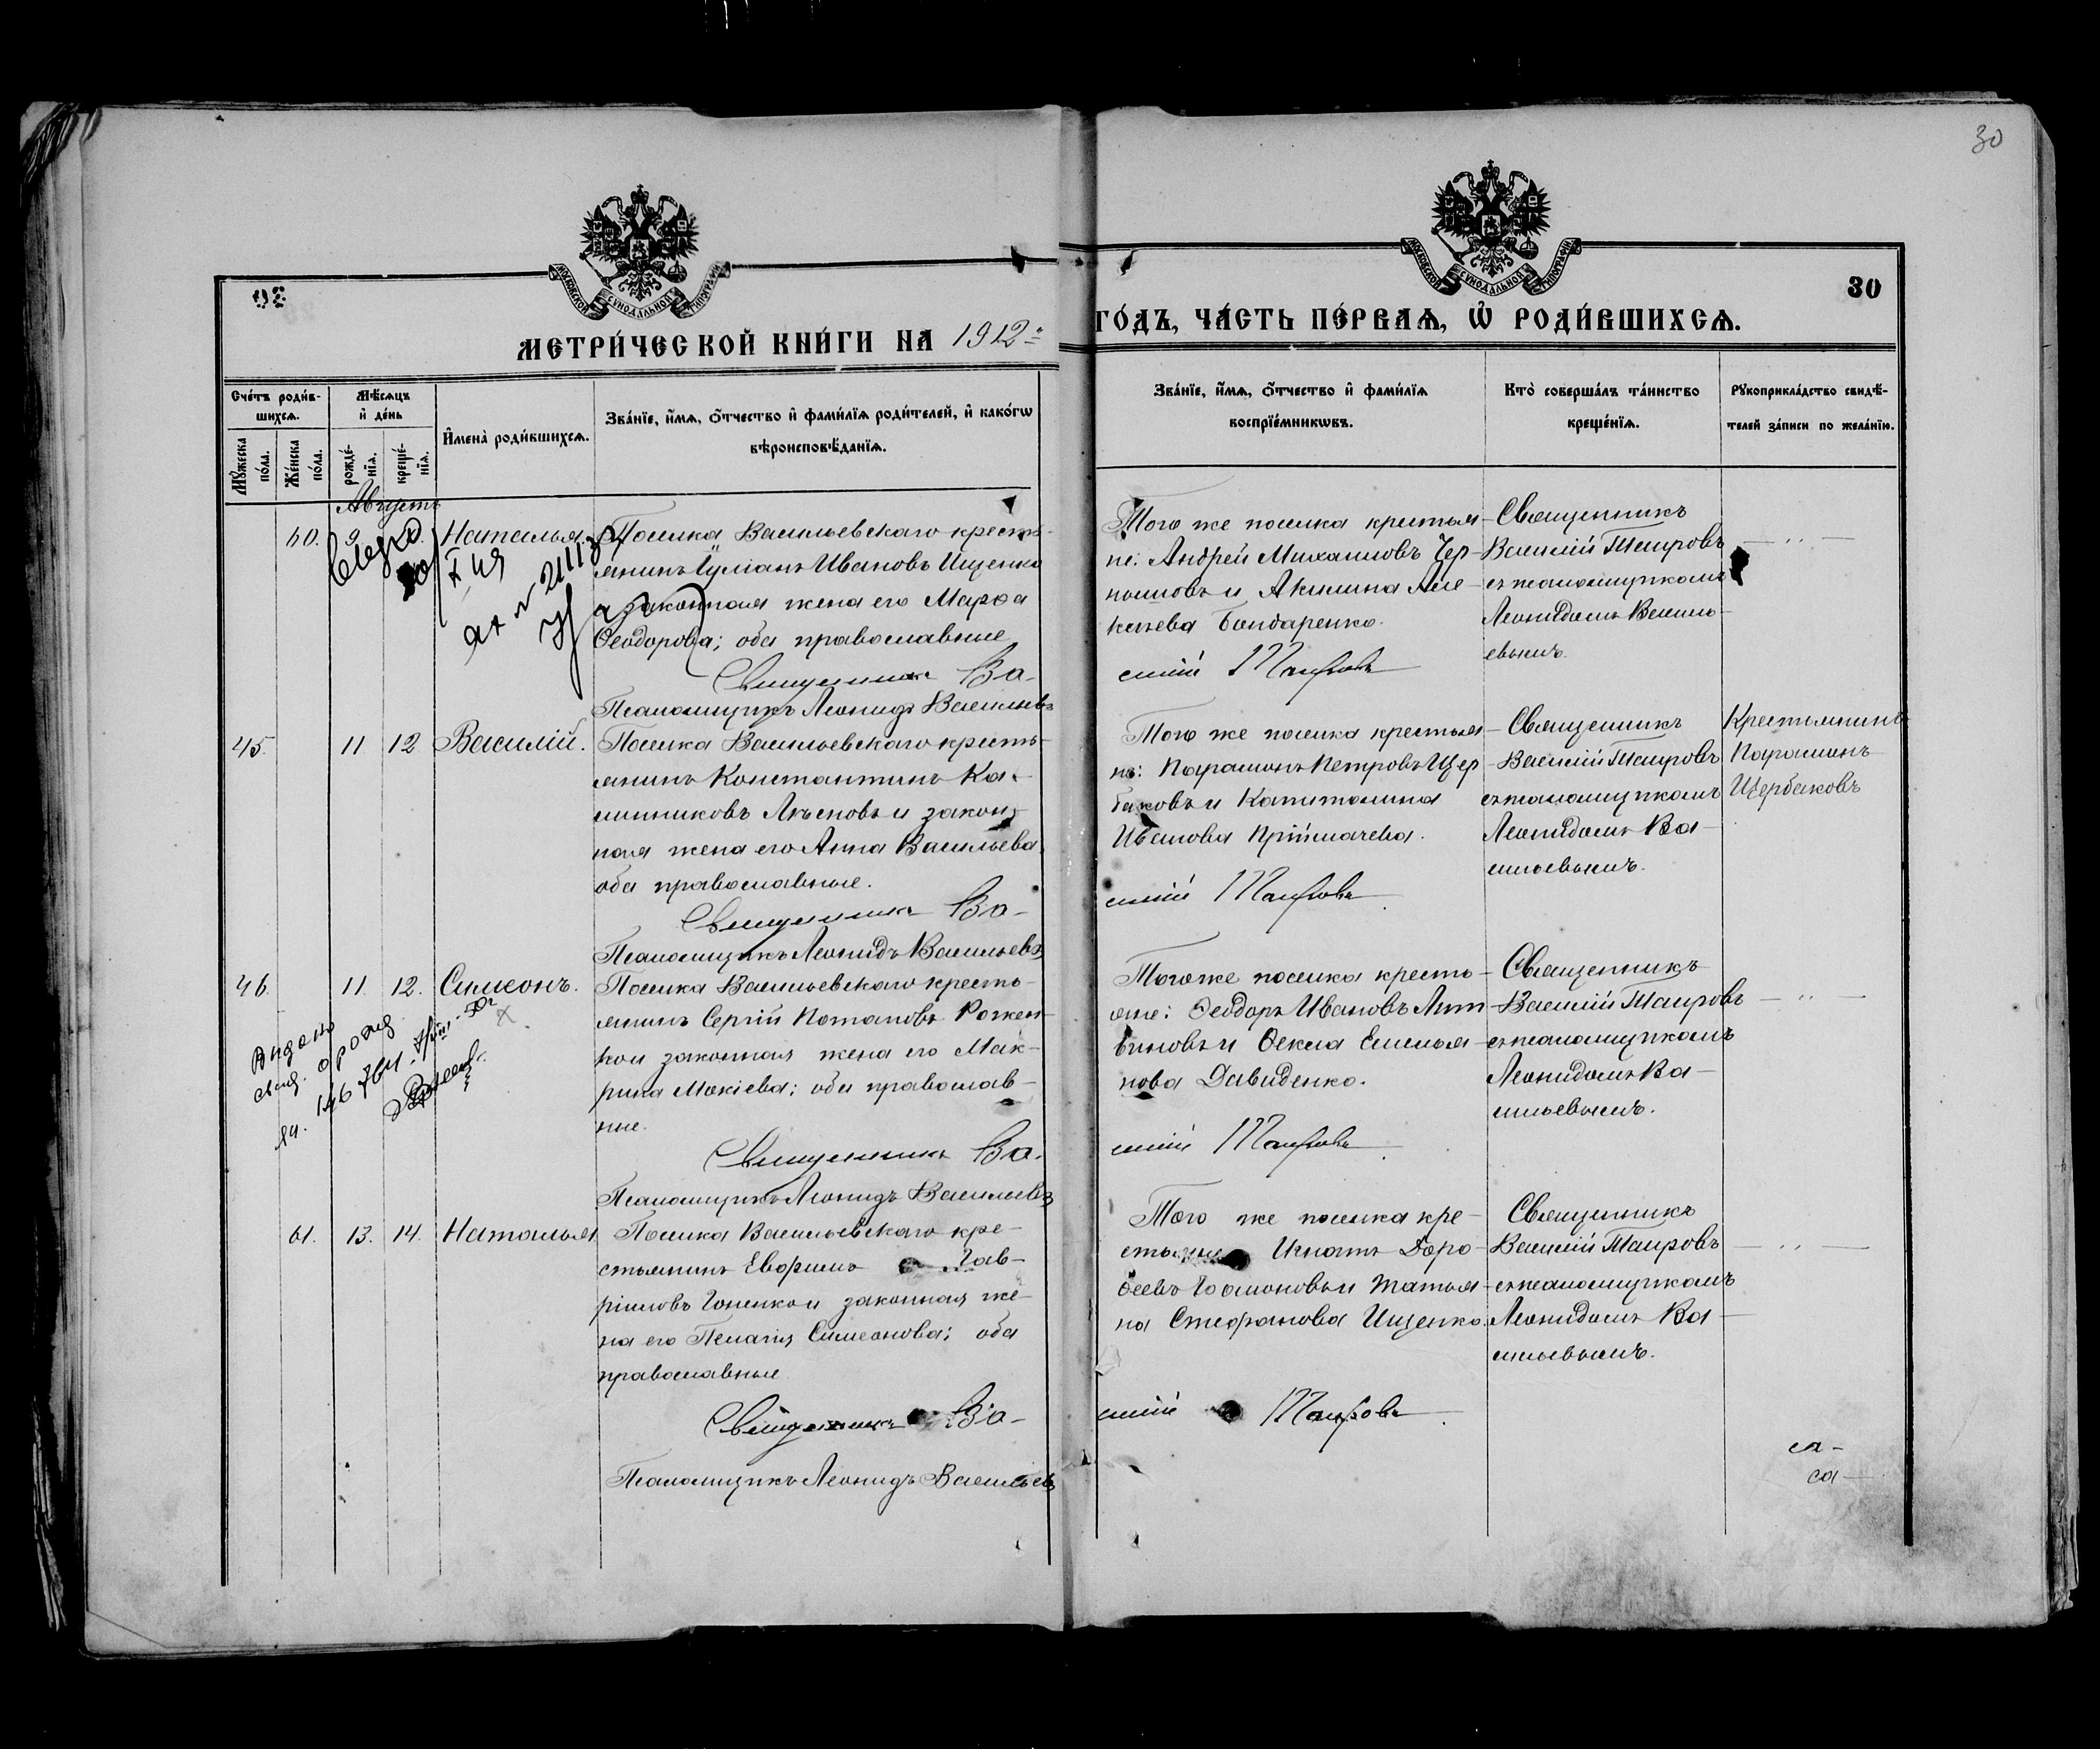 30
30
МОСКОВСКОЙ СУНОДАЛЬНОЙ ТИПОГРАФІИ
МОСКОВСКОЙ СУНОДАЛЬНОЙ ТИПОГРАФІИ
МЕТРИ́ЧЕСКОЙ КНИ́ГИ НА 1912
ГО́ДЪ, ЧА́СТЬ ПЕ́РВАѦ, Ѡ҆ РОДИ́ВШИХСѦ.
30
Сче́тъ роди́в-
шихсѧ.
Мꙋ́жеска
по́ла.
Же́нска
по́ла.
Мѣ́сѧцъ
и҆ де́нь
рожде́-
нїѧ.
креще́-
нїѧ.
И҆мена̀ роди́вшихсѧ.
Зва́нїе, и҆́мѧ, ѻ҆́тчество и҆ фами́лїѧ роди́телей, и҆ како́гѡ
вѣроисповѣ́данїѧ.
Зва́нїе, и҆́мѧ, ѻ҆́тчество и҆ фами́лїѧ
воспрїе́мникѡвъ.
Кто̀ соверша́лъ та́инство
креще́нїѧ.
Рꙋкоприкла́дство свидѣ́-
телей за́писи по жела́нїю.
Августъ
60. 9 Наталья.
Поселка Васильевскаго кресть-
янинъ Іуліанъ Ивановъ Ищенко
и законная жена его Марѳа
Ѳеодорова; оба православные
Священникъ Ва-
Псаломщикъ Леонидъ Васильевъ
Того же поселка крестья-
не: Андрей Михаиловъ Чер-
ньшовъ и Акилина Але-
ксѣева Бондаренко.
силій Таировъ
Священникъ
Василій Таировъ
съ псаломщикомъ
Леонидомъ Василь-
евымъ.
45. 11 12 Василій.
Поселка Васильевскаго кресть-
янинъ Константинъ Ка-
шинниковъ Лѣсновъ и закон-
ная жена его Анна Васильева,
оба православные.
Священникъ Ва-
Псаломщикъ Леонидъ Васильевъ
Того же поселка крестья-
не: Парамонъ Петровъ Щер-
баковъ и Капитолина
Иванова Приймачева.
силій Таировъ
Священникъ
Василій Таировъ
съ псаломщикомъ
Леонидомъ Ва-
сильевымъ.
Крестьянинъ
Парамонъ
Щербаковъ
46. 11. 12. Симеонъ.
Выдано
Поселка Васильевскаго кресть-
янинъ Сергій Потаповъ Рожен-
ко и законная жена его Мак-
рина Мокіева; оба православ-
ные.
Священникъ Ва-
Псаломщикъ Леонидъ Васильевъ
Того же поселка кресть-
яне: Ѳеодоръ Ивановъ Лит-
виновъ и Ѳекла Емелья-
нова Давиденко.
силій Таировъ
Священникъ
Василій Таировъ
съ псаломщикомъ
Леонидомъ Ва-
сильевымъ.
61. 13. 14. Наталья
Поселка Васильевскаго кре-
стьянинъ Евфимъ Гав-
ріиловъ Гоненко и законная же-
на его Пелагія Симеонова; оба
православные
Священникъ Ва-
Псаломщикъ Леонидъ Васильевъ
Того же поселка кре-
стьяне Игнатъ Доро-
ѳеевъ и Татья-
на Стефанова Ищенко.
силій Таировъ
Священникъ
Василій Таировъ
съ псаломщикомъ
Леонидомъ Ва-
сильевымъ.